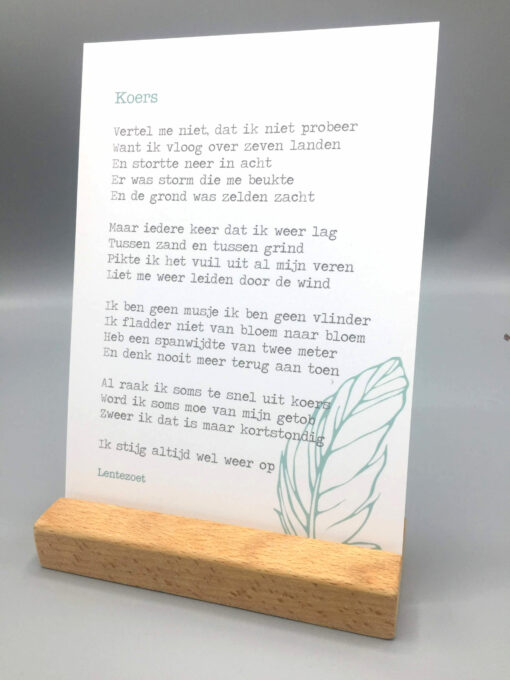 Koers
Vertel me niet, dat ik niet probeer
Want ik vloog over zeven landen
En stortte neer in acht
Er was storm die me beukte
En de grond was zelden zacht
Maar iedere keer dat ik weer lag
Tussen zand en tussen grind
Pikte ik het vuil uit al mijn veren
Liet me weer leiden door de wind
Ik ben geen musje ik ben geen vlinder
Ik fladder niet van bloem naar bloem
Heb een spanwijdte van twee meter
En denk nooit meer terug aan toen
Al raak ik soms te snel uit koers
Word ik soms moe van mijn getob
Zweer ik dat is maar kortstondig
Ik stijg altijd wel weer op
Lentezoet